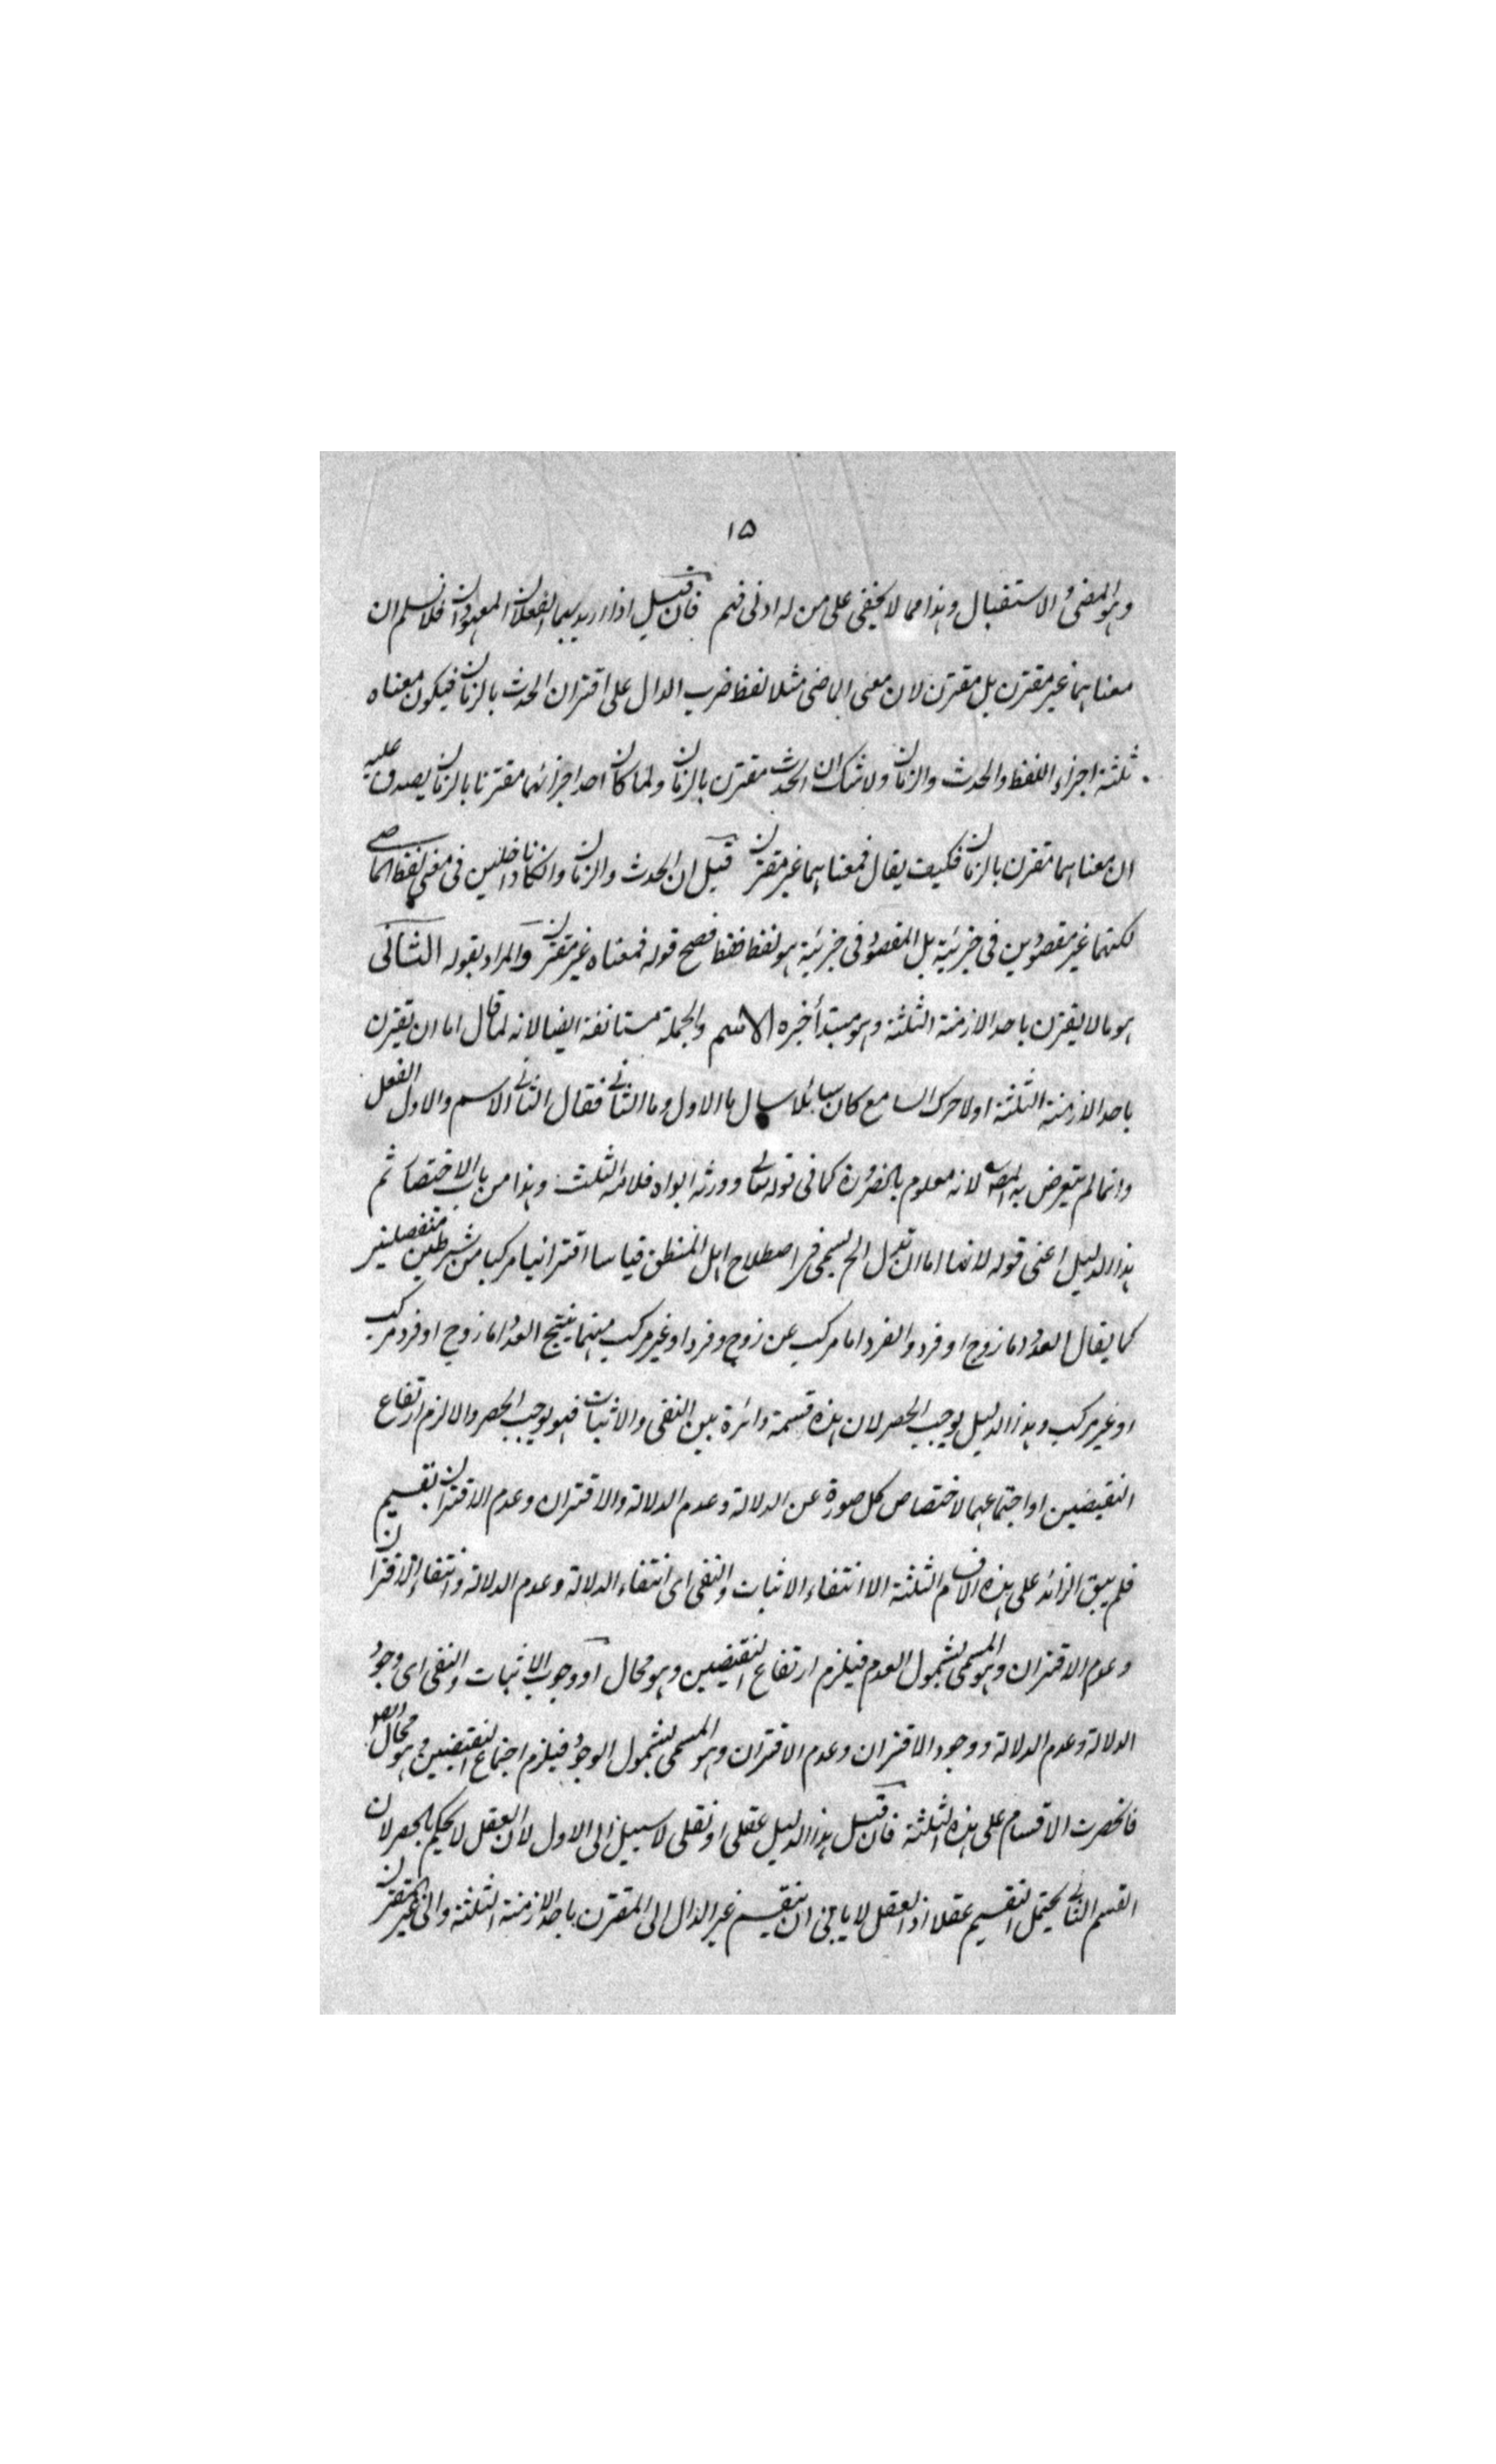 ١٥
وهو المضى والاستقبال وهذا مما لا يخفى على من له ادنى فهم فان قيل اذا اريد بهما الفعلان المعهودان فلا نسلم ان
معناهما غير مقترن بل مقترن لان معنى الماضى مثلا لفظ ضرب الدال على اقتران الحدث بالزمان فيكون معناه
ثلثة اجزاء اللفظ والحدث والزمان ولا شك ان الحدث مقترن بالزمان ولما كان احد اجزائهما مقترنا بالزمان يصدق عليه
ان معناهما مقترن بالزمان فكيف يقال فمعناهما غير مقترن قيل ان الحدث والزمان وان كانا داخلين فى معنى لفظ الماضى
لكنهما غير مقصودين فى جزئية بل المقصود فى جزئية هو لفظ فقط فصح قوله فمعناه غير مقترن والمراد بقوله الثانى
هو ما لا يقترن باحد الازمنة الثلثة وهو مبتدأ خبره الاسم والجملة مستانفة ايضا لانه لما قال اما ان يقترن
باحد الازمنة الثلثة اولا حرك السامع كان سائلا سال ما الاول وما الثانى فقال الثانى الاسم والاول الفعل
وانما لم يتعرض به المصـ لانه معلوم بالضرورة كما فى قوله تعالى وورثه ابواه فلامه الثلث وهذا من باب الاختصار ثم
هذا الدليل اعنى قوله لانها اما ان تدل الخ يسمى فى اصطلاح اهل المنطق قياسا اقترانيا مركبا من شرطين منفصلين
كما يقال العدد اما زوج او فرد والفرد اما مركب عن زوج وفرد او غير مركب منهما ينتج العدد اما زوج او فرد مركب
او غير مركب وهذا الدليل يوجب الحصر لان هذه قسمة دائرة بين النفى والاثبات فهو يوجب الحصر والا لزم ارتفاع
النقيضين او اجتماعهما لاختصاص كل صورة عن الدلالة وعدم الدلالة والاقتران وعدم الاقتران بقسيم
فلم يبق الزائد على هذه الاقسام الثلثة الا انتفاء الاثبات والنفى اى انتفاء الدلالة وعدم الدلالة وانتفاء الاقتران
وعدم الاقتران وهو المسمى بشمول العدم فيلزم ارتفاع النقيضين وهو محال او وجوب الاثبات والنفى اى وجود
الدلالة وعدم الدلالة ووجود الاقتران وعدم الاقتران وهو المسمى بشمول الوجود فيلزم اجتماع النقيضين وهو محال ايضا
فانحصرت الاقسام على هذه الثلثة فان قيل هذا الدليل عقلى او نقلى لا سبيل الى الاول لان العقل لا يحكم بالحصر لان
القسم الثانى يحتمل التقسيم عقلا اذ العقل لا يابى ان ينقسم غير الدال الى المقترن باحد الازمنة الثلثة والى غير المقترن